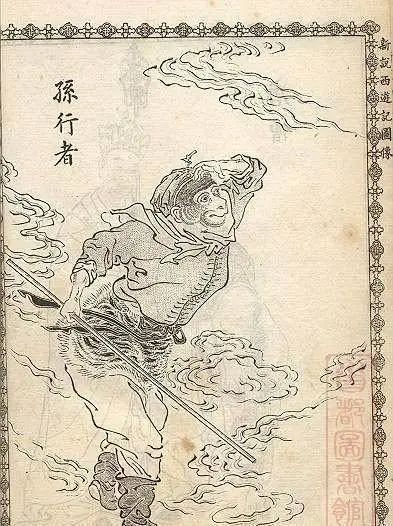 新說西遊記圖像
孫行者
都圖書館